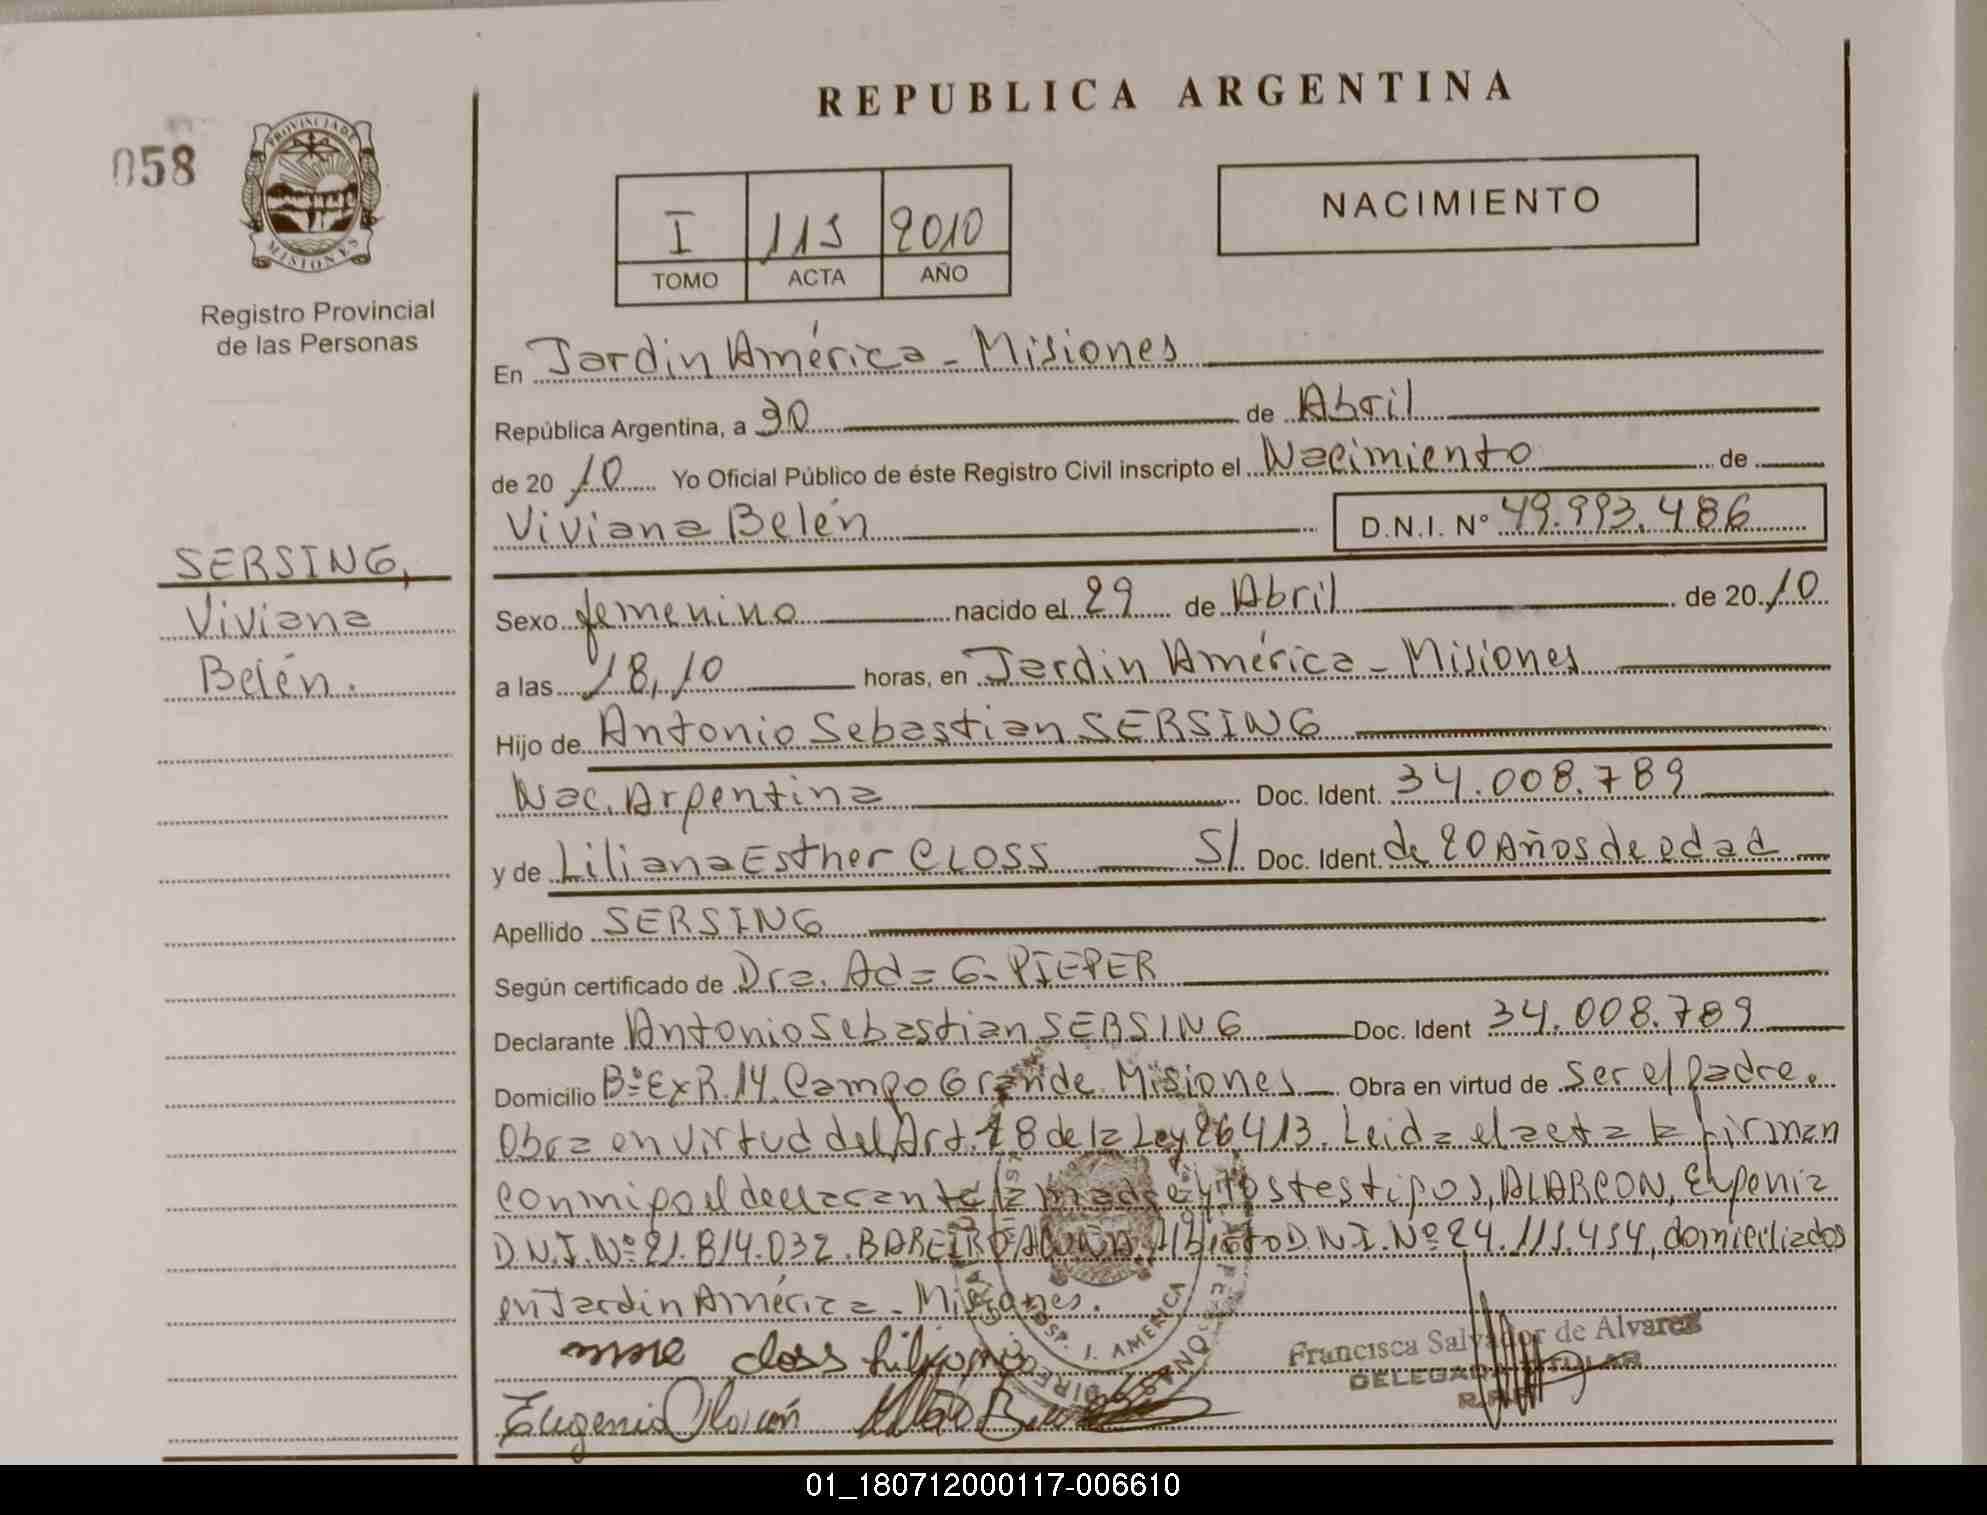 REPUBLICA ARGENTINA
058
PROVINCIA DE
MISIONES
Registro Provincial
de las Personas
I 115 2010
TOMO ACTA AÑO
NACIMIENTO
En Jardin América - Misiones
República Argentina, a 30 de Abril
de 20 10 Yo Oficial Público de éste Registro Civil inscripto el Nacimiento de
Viviana Belén D.N.I. Nº 49.993.486
SERSING,
Viviana
Belén.
Sexo femenino nacido el 29 de Abril de 20 10
a las 18,10 horas, en Jardin América - Misiones
Hijo de Antonio Sebastian SERSING
Nac. Argentina Doc. Ident. 34.008.789
y de Liliana Esther CLOSS S/ Doc. Ident. de 20 Años de edad
Apellido SERSING
Según certificado de Dra. Ada G. PIEPER
Declarante Antonio Sebastian SERSING Doc. Ident 34.008.789
Domicilio Bº Ex R.14 Campo Grande Misiones Obra en virtud de ser el padre.
Obra en virtud del Art. 28 de la Ley 26413. Leida el acta la firman
conmigo el declarante la madre y los testigos, ALARCON, Eugenia
D.N.I. Nº 21.814.032. BAREIRO Alberto D.N.I. Nº 24.115.454, domiciliados
en Jardin América - Misiones.
closs liliana
Francisca Salvador de Alvarez
DELEGADA TITULAR
Eugenia Alarcón
01_180712000117-006610